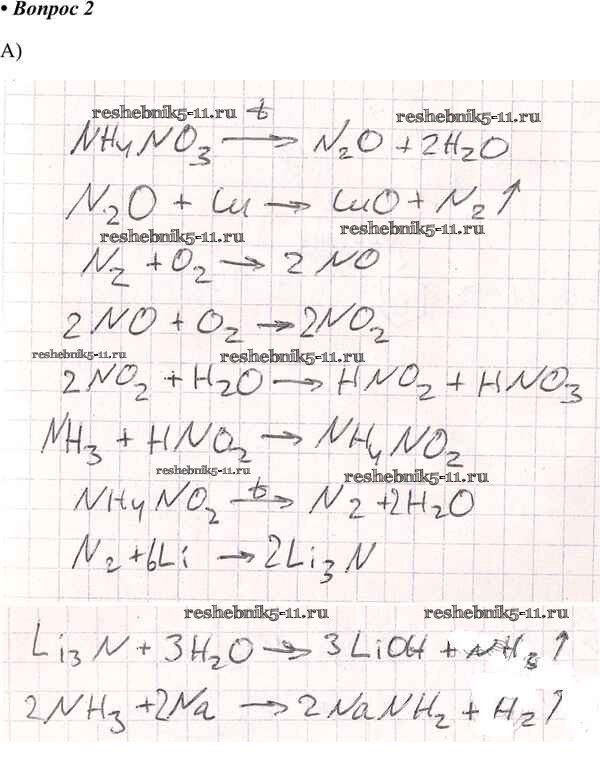 • Вопрос 2
А)
reshebnik5-11.ru t reshebnik5-11.ru
NH₄NO₃ → N₂O + 2H₂O
N₂O + Cu → CuO + N₂↑
reshebnik5-11.ru reshebnik5-11.ru
N₂ + O₂ → 2NO
2NO + O₂ → 2NO₂
reshebnik5-11.ru reshebnik5-11.ru
2NO₂ + H₂O → HNO₂ + HNO₃
NH₃ + HNO₂ → NH₄NO₂
reshebnik5-11.ru t reshebnik5-11.ru
NH₄NO₂ → N₂ + 2H₂O
N₂ + 6Li → 2Li₃N
reshebnik5-11.ru reshebnik5-11.ru
Li₃N + 3H₂O → 3LiOH + NH₃↑
2NH₃ + 2Na → 2NaNH₂ + H₂↑